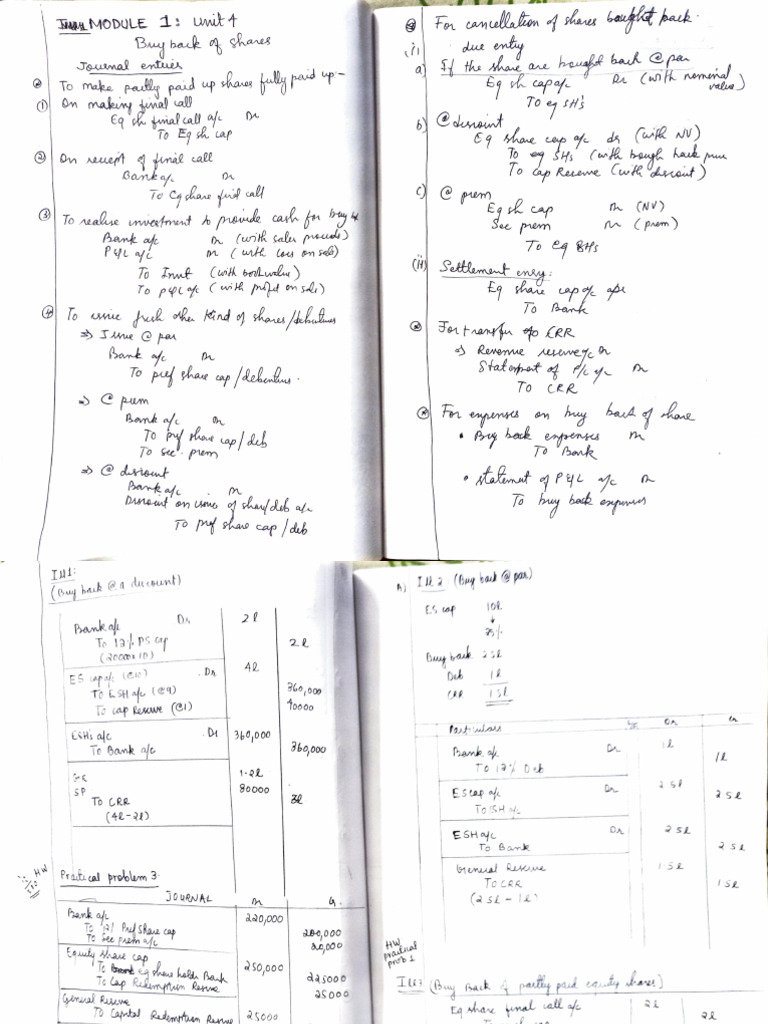 MODULE 1: Unit 4
Buy back of shares
Journal entries
To make partly paid up shares fully paid up -
(1) On making final call
Eq sh final call a/c Dr
To Eq sh cap
(2) On receipt of final call
Bank a/c Dr
To Eq share final call
(3) To realise investment to provide cash for buy bk
Bank a/c Dr (with sales proceeds)
P&L a/c Dr (with loss on sale)
To Invt (with book value)
To P&L a/c (with profit on sale)
(4) To issue fresh other kind of shares/debentures
⇒ Issue @ par
Bank a/c Dr
To pref share cap/debenture.
⇒ @ prem
Bank a/c Dr
To pref share cap/deb
To sec. prem
⇒ @ discount
Bank a/c Dr
Discount on issue of share/deb a/c
To pref share cap/deb
For cancellation of shares bought back
(i) due entry
a) If the share are bought back @ par
Eq sh cap a/c Dr (with nominal value)
To eq SH's
b) @ discount
Eq share cap a/c dr (with NV)
To eq SHs (with bough back
To cap Reserve (with discount)
c) @ prem
Eq sh cap Dr (NV)
Sec prem Dr (prem)
To Eq SHs
(ii) Settlement entry:
Eq share cap a/c
To Bank
For transfer to CRR
Revenue reserve a/c Dr
Statement of P/L a/c Dr
To CRR
For expenses on buy back of share
• Buy back expenses Dr
To Bank
• Statemnt of P&L a/c Dr
To buy back expenses
Ill 1:
(Buy back @ a discount)
Bank a/c Dr 2l
To 12% PS cap 2l
(20000×10)
ES cap a/c (@10) Dr 4l
To ESH a/c (@9) 360,000
To cap Reserve (@1) 40000
ESH's a/c Dr 360,000
To Bank a/c 360,000
1.2l
SP 80000
To CRR 2l
(4l-2l)
HW
Practical problem 3.
JOURNAL Dr Cr
Bank a/c 220,000
To 12% Pref share cap 200,000
To Sec prem a/c 20,000
Equity share cap 250,000
To eq share holds Bank 225000
To Cap Redemption Resrve 25000
General Reserve
To Capital Redemption Reserve 25000
A) Ill 2: (Buy back @ par)
ES cap 10l
25%
Buy back 2.5l
Deb 1l
CRR 1.5l
Particulars Dr Cr
Bank a/c Dr 1l
To 12% Deb 1l
ES cap a/c Dr 2.5l
To ESH a/c 2.5l
ESH a/c Dr 2.5l
To Bank 2.5l
General Reserve 1.5l
To CRR 1.5l
(2.5l - 1l)
HW
practical
prob 1
Ill 3 (Buy Back of partly paid equity shares)
Eq share final call a/c 2l
2l